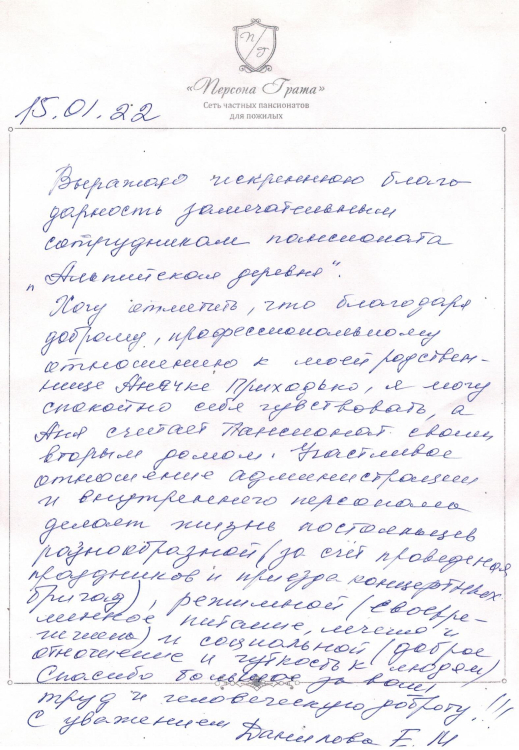 П/Г
«Персона Грата»
Сеть частных пансионатов
для пожилых
15.01.22
Выражаю искреннюю благо
дарность замечательным
сотрудникам пансионата
„Альпийская деревня".
Хочу отметить, что благодаря
доброму, профессиональному
отношению к моей родствен-
нице Анечке Приходько, я могу
спокойно себя чувствовать, а
Аня считает Пансионат своим
вторым домом. Участливое
отношение администрации
и внутреннего персонала
делает жизнь постояльцев
разнообразной (за счёт проведения
праздников и приезда концертных
бригад), режимной (своевре-
менное питание, лечение и
гигиена) и социальной (доброе
отношение и чуткость к людям)
Спасибо большое за ваш
труд и человеческую доброту!!!
С уважением Данилова Е. М